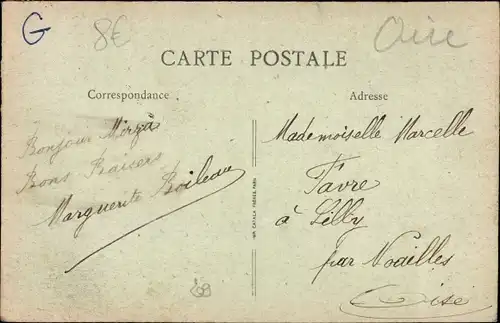 G
8€
Oise
CARTE POSTALE
Correspondance
Adresse
Bonjour Mirza
Bons Baisers
Marguerite Boileau
Mademoiselle Marcelle
Favre
à Silly
par Noailles
Oise
IMP. CATALA FRÈRES, PARIS